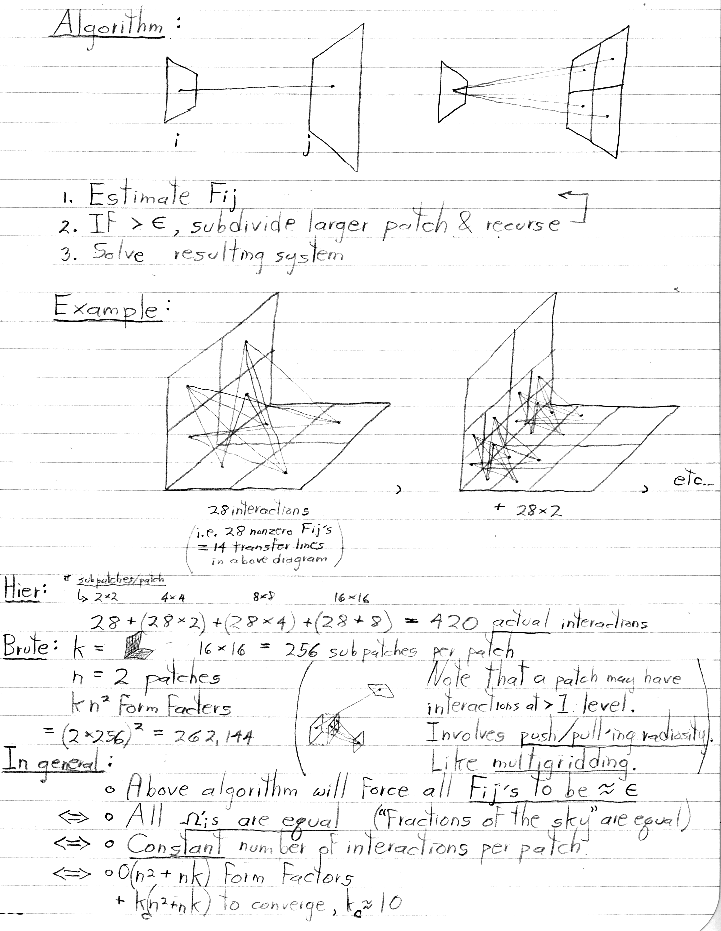 Algorithm:
i j
1. Estimate Fij
2. If > ϵ, subdivide larger patch & recurse
3. Solve resulting system
Example:
, , etc...
28 interactions + 28×2
(i.e. 28 nonzero Fij's
= 14 transfer lines
in above diagram)
Hier: # subpatches/patch
↳ 2×2 4×4 8×8 16×16
28 + (28×2) + (28×4) + (28+8) = 420 actual interactions
Brute: k = 16×16 = 256 subpatches per patch
n = 2 patches
kn² form factors
= (2×256)² = 262,144
(Note that a patch may have
interactions at >1 level.
Involves push/pull'ing radiosity.
Like multigridding.)
In general:
o Above algorithm will force all Fij's to be ≈ ϵ
⇔ o All Ωi's are equal ("Fractions of the sky" are equal)
⇔ o Constant number of interactions per patch.
⇔ o O(n² + nk) Form Factors
+ kc(n²+nk) to converge, kc ≈ 10